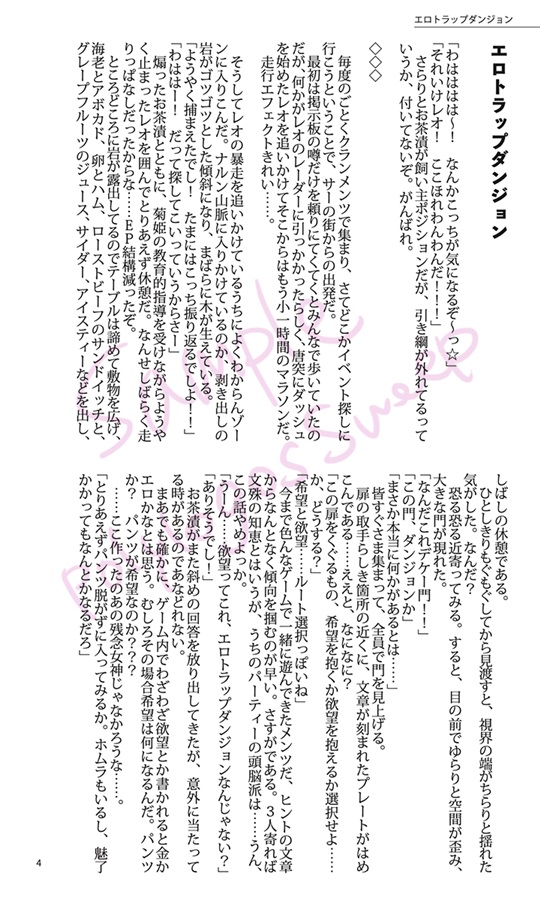 エロトラップダンジョン
エロトラップダンジョン
「わはははは〜!　なんかこっちが気になるぞ〜っ☆」
「それいけレオ!　ここほれわんわんだ!!!」
さらりとお茶漬が飼い主ポジションだが、引き綱が外れてるって
いうか、付いてないぞ。がんばれ。
◇◇◇
毎度のごとくクランメンツで集まり、さてどこかイベント探しに
行こうということで、サーの街からの出発だ。
最初は掲示板の噂だけを頼りにてくてくとみんなで歩いていたの
だが、何かがレオのレーダーに引っかかったらしく、唐突にダッシュ
を始めたレオを追いかけてそこからはもう小一時間のマラソンだ。
走行エフェクトきれい……。
そうしてレオの暴走を追いかけているうちによくわからんゾー
ンに入りこんだ。ナルン山脈に入りかけているのか、剥き出しの
岩がゴツゴツとした傾斜になり、まばらに木が生えている。
「ようやく捕まえたでし!　たまにはこっち振り返るでしよ!!」
「わははー!　だって探してこいっていうからさー」
煽ったお茶漬とともに、菊姫の教育的指導を受けながらようや
く止まったレオを囲んでとりあえず休憩だ。なんせしばらく走
りっぱなしだったからな……EP結構減ったぞ。
ところどころに岩が露出してるのでテーブルは諦めて敷物を広げ、
海老とアボカド、卵とハム、ローストビーフのサンドイッチと、
グレープフルーツのジュース、サイダー、アイスティーなどを出し、
しばしの休憩である。
ひとしきりもぐもぐしてから見渡すと、視界の端がちらりと揺れた
気がした。なんだ?
恐る恐る近寄ってみる。すると、目の前でゆらりと空間が歪み、
大きな門が現れた。
「なんだこれデケー門!!」
「この門、ダンジョンか」
「まさか本当に何かがあるとは……」
皆すぐさま集まって、全員で門を見上げる。
扉の取手らしき箇所の近くに、文章が刻まれたプレートがはめ
こんである……ええと、なになに?
「この扉をくぐるもの、希望を抱くか欲望を抱えるか選択せよ……
か、どうする?」
「希望と欲望……ルート選択っぽいね」
今まで色んなゲームで一緒に遊んできたメンツだ、ヒントの文章
からなんとなく傾向を掴むのが早い。さすがである。3人寄れば
文殊の知恵とはいうが、うちのパーティーの頭脳派は……うん、
この話やめよっか。
「うーん、……欲望ってこれ、エロトラップダンジョンなんじゃない?」
「ありそうでし!」
お茶漬がまた斜めの回答を放り出してきたが、意外に当たって
る時があるのであなどれない。
まあでも確かに、ゲーム内でわざわざ欲望とか書かれると金か
エロかなとは思う。むしろその場合希望は何になるんだ。パンツ
か?　パンツが希望なのか???
……ここ作ったのあの残念女神じゃなかろうな……。
「とりあえずパンツ脱がずに入ってみるか。ホムラもいるし、魅了
かかってもなんとかなるだろ」
Sample
Process Sweep
4